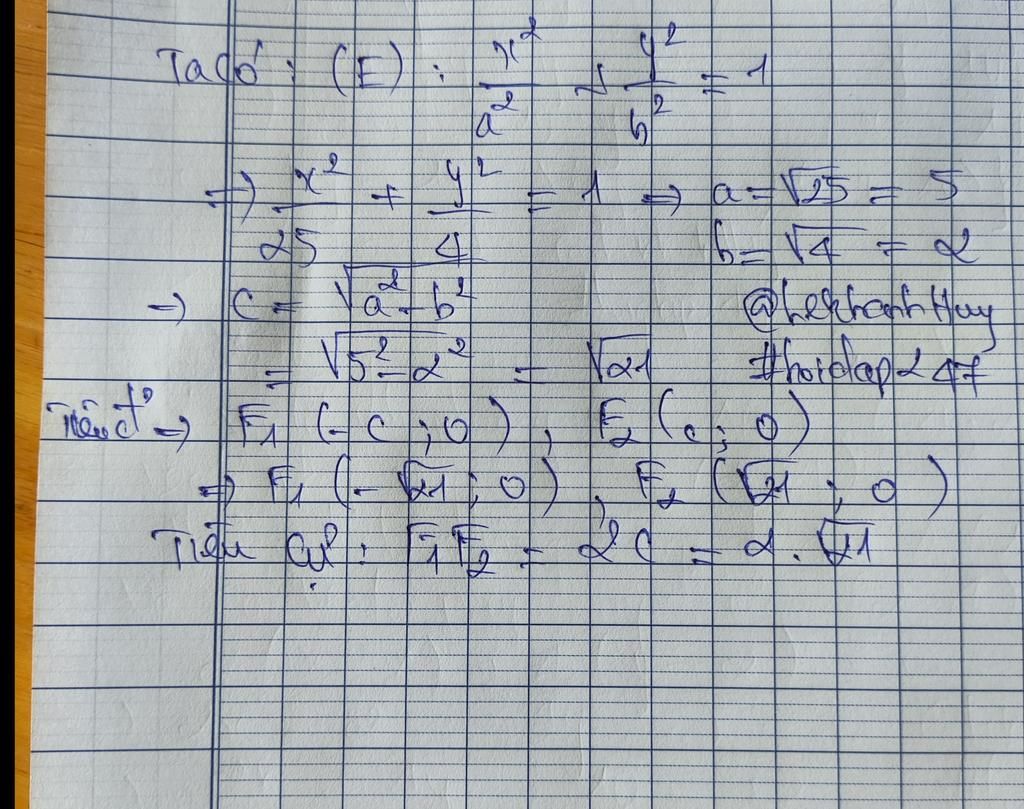 Ta có : (E) : x²/a² + y²/b² = 1
=> x²/25 + y²/4 = 1 => a = √25 = 5
b = √4 = 2
=> c = √a² - b²
@lekhanhHuy
= √5² - 2² = √21
#hoidap247
Tiêu đ' => F₁ (- c ; 0) , F₂ (c ; 0)
=> F₁ (- √21 ; 0) , F₂ (√21 ; 0)
Tiêu cự : F₁F₂ = 2c = 2 . √21